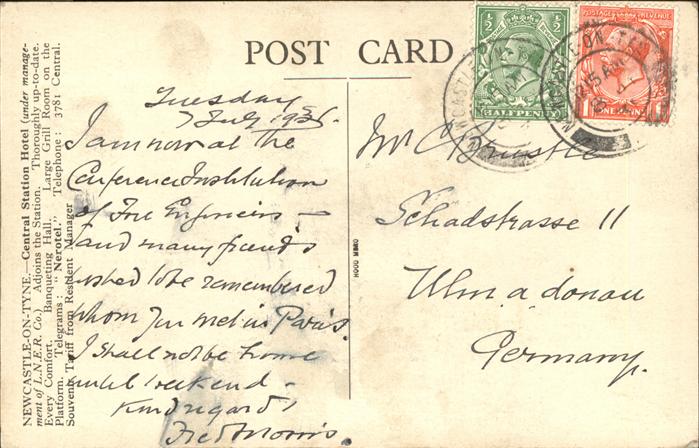 POST CARD
NEWCASTLE-ON-TYNE.—Central Station Hotel (under manage-
ment of L.N.E.R. Co.) Adjoins the Station. Thoroughly up-to-date.
Every Comfort. Banqueting Hall. Large Grill Room on the
Platform. Telegrams: "Nerotel." Telephone: 3781 Central.
Souvenir Tariff from Resident Manager
Tuesday
7 July
I am now at the
Conference Institution
of Fire Engineers —
and many friends
wished to be remembered
whom you met in Paris.
I shall not be home
until weekend -
Kind regards
Fred Morris
HOOD
½ ½
HALFPENNY
POSTAGE REVENUE
1 ONE PENNY
NEWCASTLE-ON-TYNE
12.15 AM
Mr C
Schadstrasse 11
Ulm a donau
Germany.